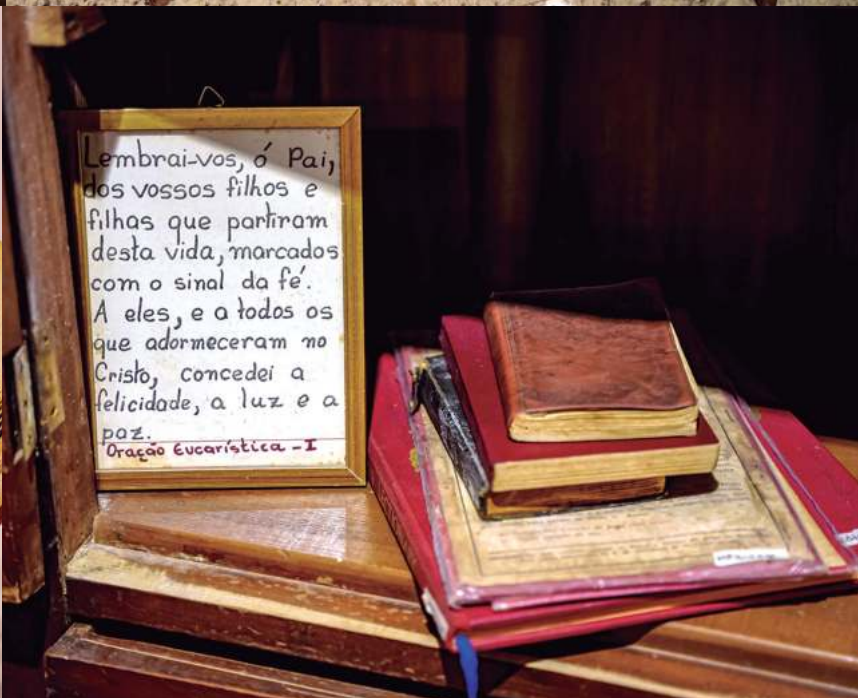 Lembrai-vos, ó Pai,
dos vossos filhos e
filhas que partiram
desta vida, marcados
com o sinal da fé.
A eles, e a todos os
que adormeceram no
Cristo, concedei a
felicidade, a luz e a
paz.
Oração Eucarística - I